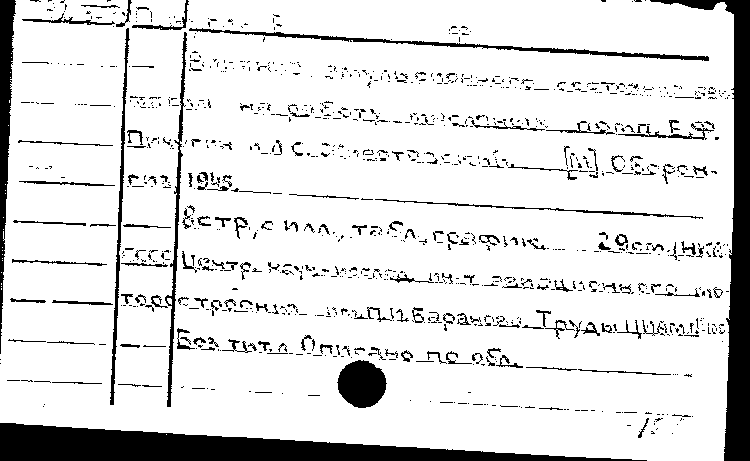 Влияние эмульсионного состояния авиа
масла на работу масляных помп. Е.Ф.
Пичугин и Л С. [М], Оборон-
гиз, 1945.
8 стр, с илл., табл., график. 29 см (НКАП
СССР Центр. науч-исслед. ин-т авиационного мо-
торостроения им. П.И. Баранова. Труды ЦИАМ
Без тит. л Описано по обл.